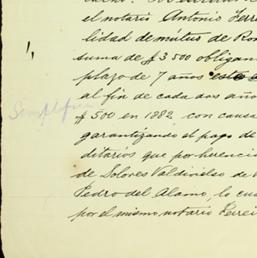 el notario Antonio Ferre
lidad de mútuo de Rom
suma de $3500 obligan
plazo de 7 años
al fin de cada dos año
$500 en 1882, con causa
garantizando el pago de
ditarios que por herenci
de Dolores Valdivielso de
Pedro del Alamo, lo cu
por el mismo notario Ferrei